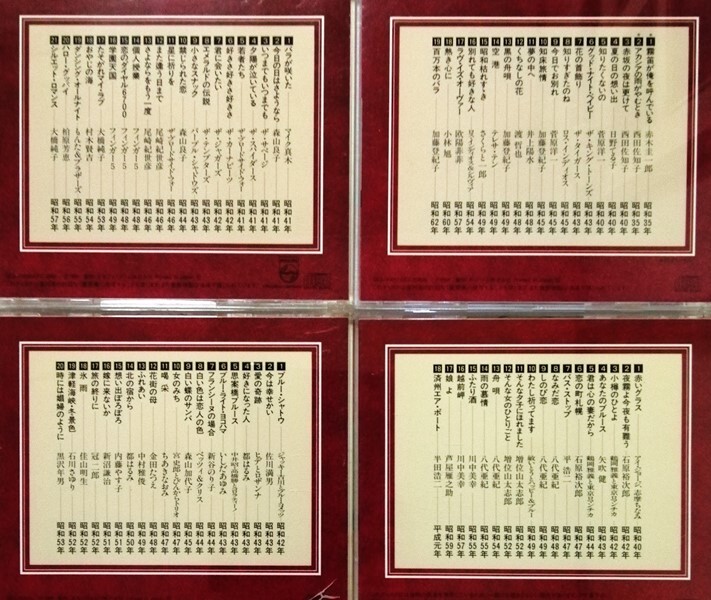 1 バラが咲いた マイク真木 昭和41年
2 今日の日はさようなら 森山良子 昭和41年
3 いつまでもいつまでも ザ・サベージ 昭和41年
4 夕陽が泣いている ザ・スパイダース 昭和41年
5 若者たち ザ・ブロードサイド・フォー 昭和41年
6 好きさ好きさ好きさ ザ・カーナビーツ 昭和42年
7 君に会いたい ザ・ジャガーズ 昭和42年
8 エメラルドの伝説 ザ・テンプターズ 昭和43年
9 小さなスナック パープル・シャドウズ 昭和43年
10 禁じられた恋 森山良子 昭和44年
11 星に祈りを ザ・ブロードサイド・フォー
12 また逢う日まで 尾崎紀世彦 昭和46年
13 さよならをもう一度 尾崎紀世彦 昭和46年
14 個人授業 フィンガー5 昭和48年
15 恋のダイヤル6700 フィンガー5 昭和48年
16 学園天国 フィンガー5 昭和49年
17 たそがれマイ・ラブ 大橋純子 昭和53年
18 おやじの海 村木賢吉 昭和54年
19 ダンシング・オールナイト もんた&ブラザーズ 昭和55年
20 ハロー・グッバイ 柏原芳恵 昭和56年
21 シルエット・ロマンス 大橋純子 昭和57年
1 霧笛が俺を呼んでいる 赤木圭一郎 昭和35年
2 アカシアの雨がやむとき 西田佐知子 昭和35年
3 赤坂の夜は更けて 西田佐知子 昭和40年
4 夏の日の想い出 日野てる子 昭和40年
5 知りたくないの 菅原洋一 昭和40年
6 グッド・ナイト・ベイビー ザ・キング・トーンズ 昭和43年
7 花の首飾り ザ・タイガース 昭和43年
8 知りすぎたのね ロス・インディオス
9 今日でお別れ 菅原洋一
10 知床旅情 加藤登紀子 昭和45年
11 夢の中へ 井上陽水 昭和48年
12 くちなしの花 渡哲也 昭和48年
13 黒の舟唄 加藤登紀子
14 空港 テレサ・テン 昭和49年
15 昭和枯れすゝき さくらと一郎 昭和49年
16 別れても好きな人 ロス・インディオス&シルヴィア 昭和54年
17 ラヴ・イズ・オーヴァー 欧陽菲菲
18 熱き心に 小林旭 昭和60年
19 百万本のバラ 加藤登紀子 昭和62年
1 ブルー・シャトウ ジャッキー吉川とブルー・コメッツ 昭和42年
2 今は幸せかい 佐川満男 昭和43年
3 愛の奇跡 ヒデとロザンナ 昭和43年
4 好きになった人 都はるみ 昭和43年
5 思案橋ブルース 中井昭・高橋勝とコロラティーノ 昭和43年
6 ブルー・ライト・ヨコハマ いしだあゆみ 昭和43年
7 フランシーヌの場合 新谷のり子 昭和44年
8 白い色は恋人の色 ベッツィ&クリス 昭和44年
9 白い蝶のサンバ 森山加代子 昭和45年
10 女のみち 宮史郎とぴんからトリオ 昭和47年
11 喝采 ちあきなおみ 昭和47年
12 花街の母 金田たつえ 昭和48年
13 ふれあい 中村雅俊 昭和49年
14 北の宿から 都はるみ 昭和50年
15 想い出ぼろぼろ 内藤やす子 昭和51年
16 嫁に来ないか 新沼謙治 昭和51年
17 旅の終りに 冠二郎 昭和52年
18 氷雨 佳山明生 昭和52年
19 津軽海峡・冬景色 石川さゆり 昭和52年
20 時には娼婦のように 黒沢年男 昭和53年
1 赤いグラス アイ・ジョージ、志摩ちなみ 昭和40年
2 夜霧よ今夜も有難う 石原裕次郎 昭和42年
3 小樽のひとよ 鶴岡雅義と東京ロマンチカ 昭和42年
4 あなたのブルース 矢吹健 昭和43年
5 君は心の妻だから 鶴岡雅義と東京ロマンチカ 昭和44年
6 恋の町札幌 石原裕次郎 昭和47年
7 バス・ストップ 平浩二 昭和47年
8 なみだ恋 八代亜紀 昭和48年
9 しのび恋 八代亜紀
10 わたし祈ってます 敏いとうとハッピー&ブルー
11 そんな夕子にほれました 増位山太志郎
12 そんな女のひとりごと 増位山太志郎 昭和52年
13 舟唄 八代亜紀 昭和54年
14 雨の慕情 八代亜紀 昭和55年
15 ふたり酒 川中美幸 昭和55年
16 越前岬 川中美幸
17 娘よ 芦屋雁之助 昭和59年
18 済州エア・ポート 半田浩二 平成元年
PHILIPS